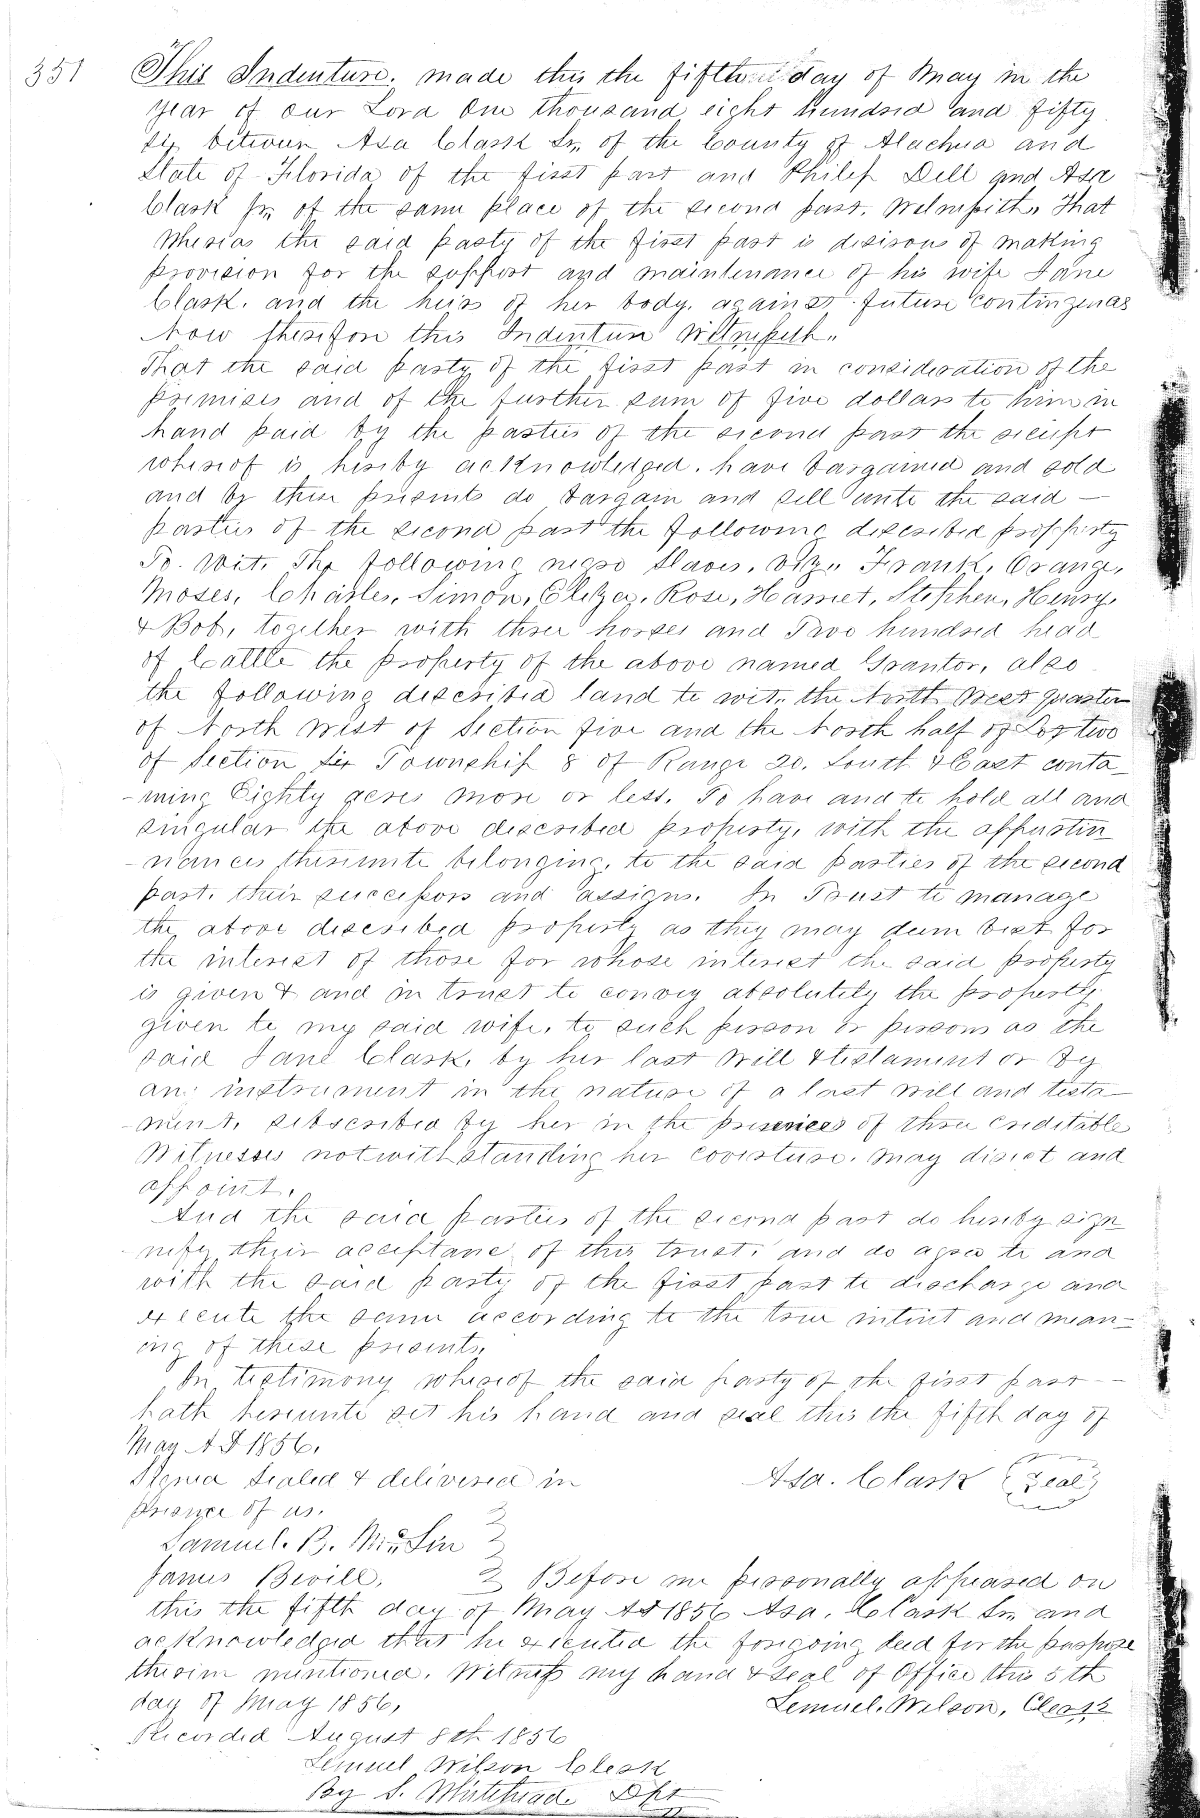 351
This Indenture. made this the fifth day of May in the
year of our Lord One thousand eight hundred and fifty
six between Asa Clark Sr. of the County of Alachua and
State of Florida of the first part and Philip Dell and Asa
Clark Jr. of the same place of the second part. Witnesseth. That
Whereas the said party of the first part is desirous of making
provision for the support and maintenance of his wife Jane
Clark. and the heirs of her body. against future contingenas
Now therefore this Indenture Witnesseth..
That the said party of the first part in consideration of the
premises and of the further sum of five dollars to him in
hand paid by the parties of the second part the receipt
whereof is hereby acknowledged. have bargained and sold
and by these presents do bargain and sell unto the said —
parties of the second part the following described property
To. Wit. The following negro Slaves, Viz.. Frank, Orange,
Moses, Charles, Simon, Eliza, Rose, Harriet, Stephen, Henry,
& Bob, together with three horses and Two hundred head
of Cattle the property of the above named Grantor, also
the following described land to wit.. the North West quarter
of North West of Section five and the North half of Lot two
of Section Six Township 8 of Range 20. South & East conta-
-ining Eighty acres more or less. To have and to hold all and
singular the above described property, with the appurtin
-nances thereunto belonging. to the said parties of the second
part. their successors and assigns. In Trust to manage
the above described property as they may deem best for
the interest of those for whose interest the said property
is given & and in trust to convey absolutely the property
given to my said wife, to such person or persons as the
said Jane Clark, by her last Will & testament or by
an instrument in the nature of a last will and testa-
-ment. subscribed by her in the presences of three creditable
Witnesses notwithstanding her coverture. may direct and
appoint.
And the said parties of the second part do hereby sign
-nify their acceptane of this trust. and do agree to and
with the said party of the first part to discharge and
execute the same according to the true intent and mean-
ing of these presents.
In testimony whereof the said party of the first part --
hath hereunto set his hand and seal this the fifth day of
May A D 1856.
Signed Sealed & delivered in Asa. Clark (Seal)
presence of us.
Samuel. B. McLin
James Bevill. Before me personally appeared on
this the fifth day of May AD 1856 Asa. Clark Sr. and
acknowledged that he executed the foregoing deed for the purpose
therein mentioned. Witness my hand & seal of Office this 5th
day of May 1856, Lemuel. Wilson, Clerk
Recorded August 8th 1856
Lemuel Wilson Clerk
By S. Dpt